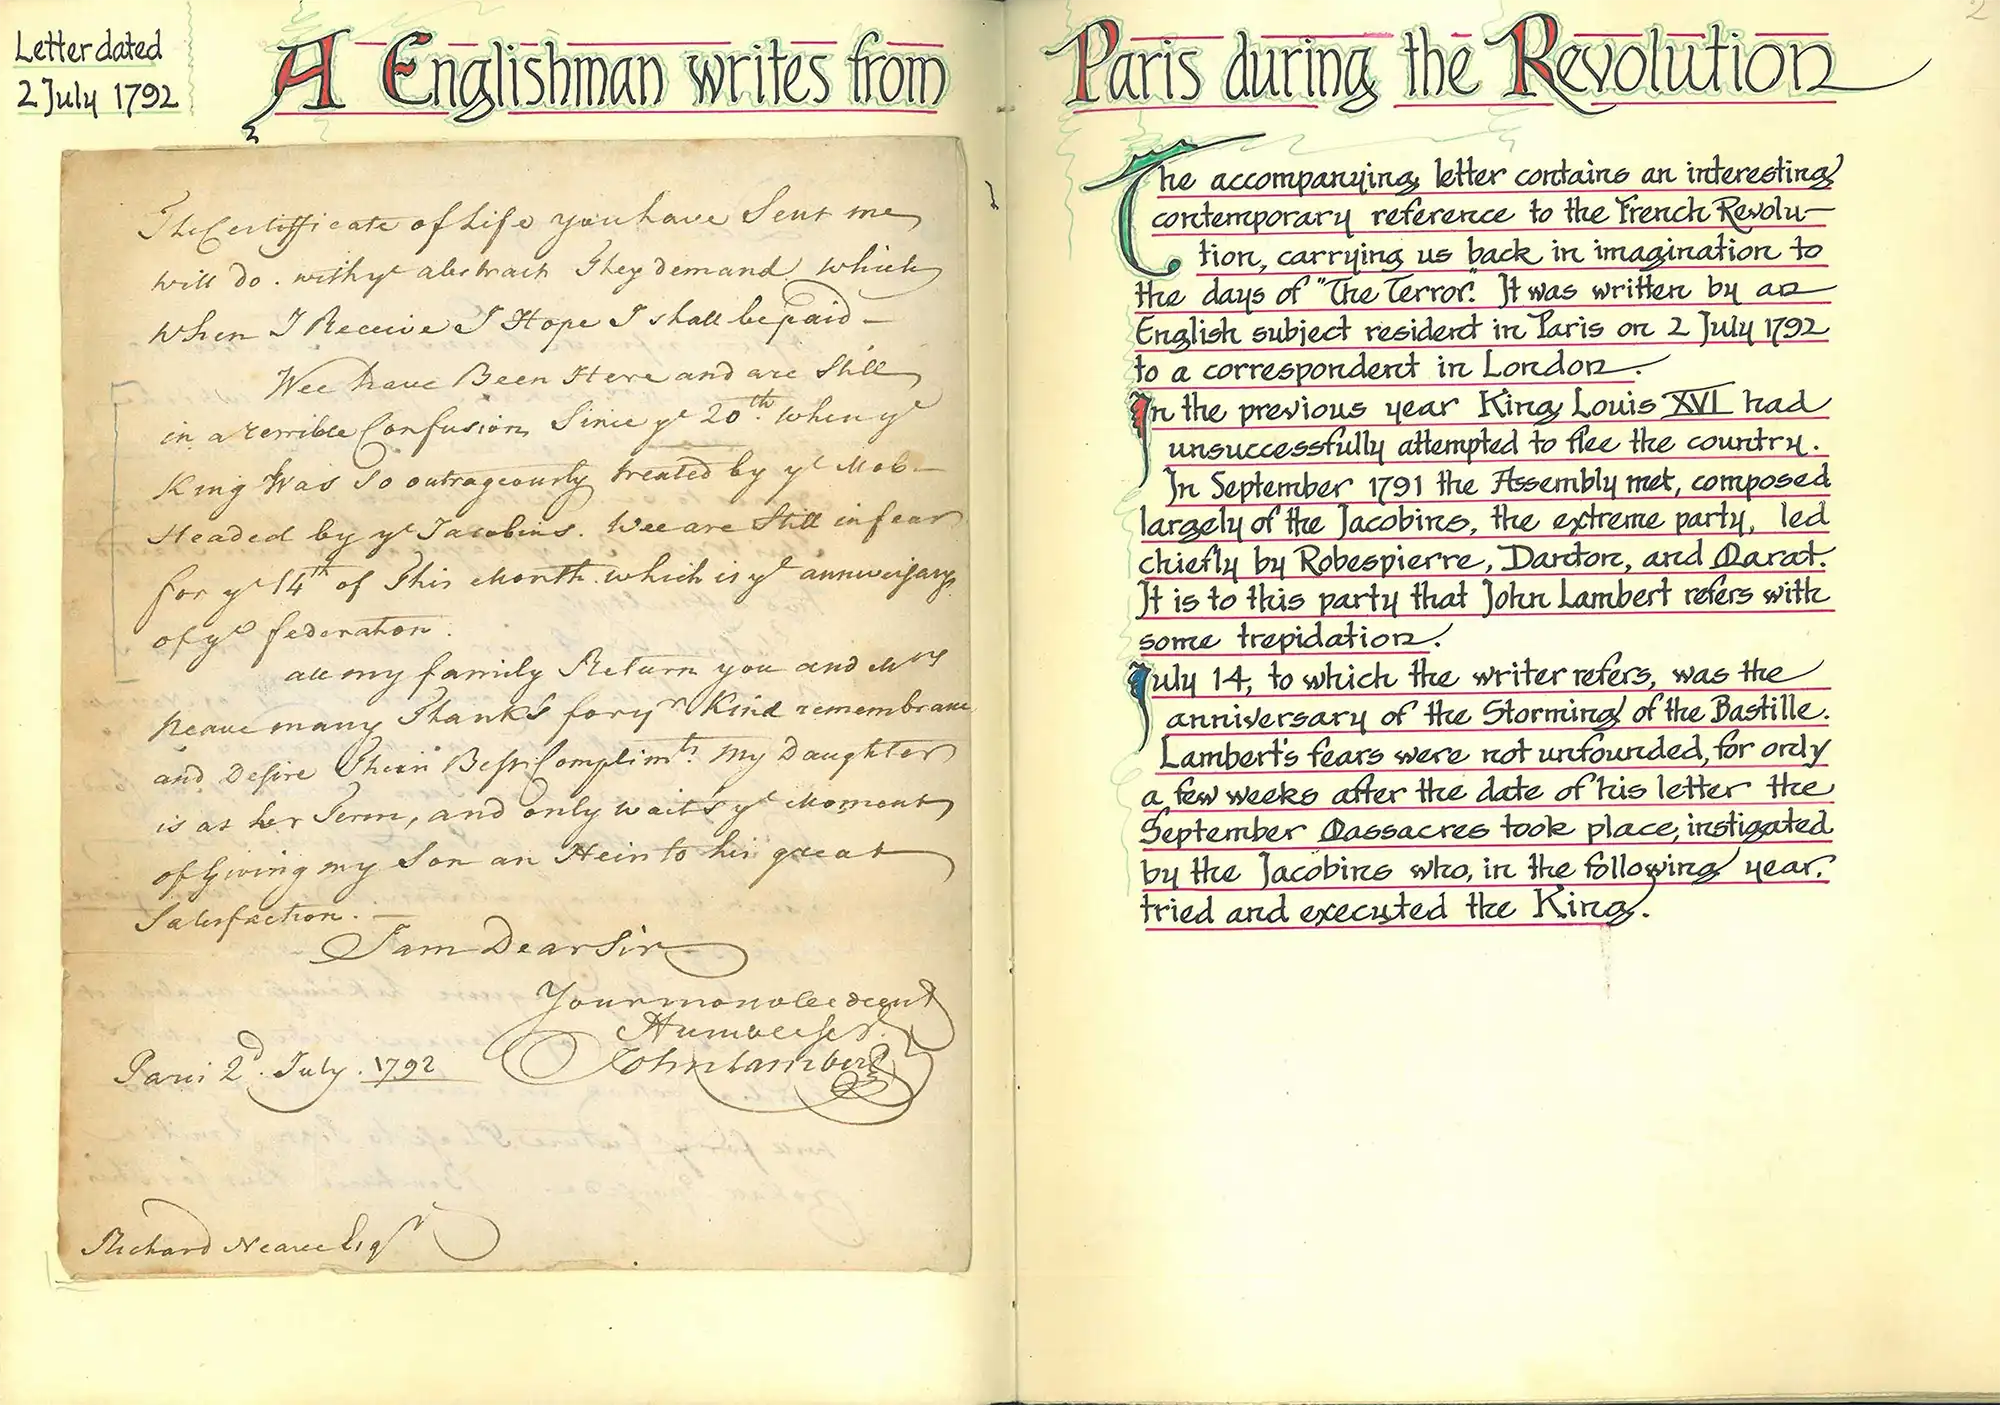 Letter dated
2 July 1792
A Englishman writes from Paris during the Revolution
The Certifficate of Life you have Sent me
will do. with ye abstract They demand which
when I Receive I Hope I shall be paid —
Wee have Been Here and are Still
in a terrible Confusion Since ye 20th. when ye
King Was So outrageously treated by ye Mob —
Headed by ye Jacobins. Wee are Still in fear
for ye 14th of This Month which is ye anniversary
of ye federation.
all my family Return you and Mrs
Neave many Thanks for yr Kind remembrance
and Desire Their Best Complimts. My Daughter
is at her Term, and only waits ye Moment
of Giving my Son an Heir to his great
Satisfaction. —
I am Dear Sir
Your most obedient
Humble Sert.
John Lambert
Paris 2d. July. 1792
Richard Neave Esqr
2
The accompanying letter contains an interesting
contemporary reference to the French Revolu-
tion, carrying us back in imagination to
the days of "The Terror". It was written by an
English subject resident in Paris on 2 July 1792
to a correspondent in London.
In the previous year King Louis XVI had
unsuccessfully attempted to flee the country.
In September 1791 the Assembly met, composed
largely of the Jacobins, the extreme party, led
chiefly by Robespierre, Danton, and Marat.
It is to this party that John Lambert refers with
some trepidation.
July 14, to which the writer refers, was the
anniversary of the Storming of the Bastille.
Lambert's fears were not unfounded, for only
a few weeks after the date of his letter the
September Massacres took place, instigated
by the Jacobins who, in the following year,
tried and executed the King.